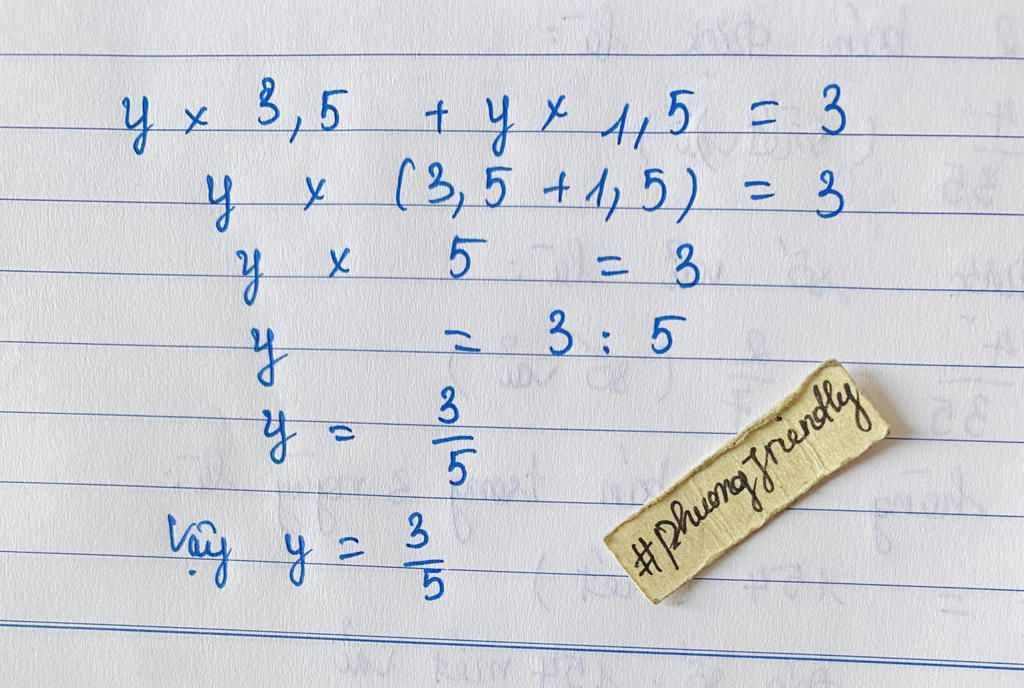 y × 3,5 + y × 1,5 = 3
y × (3,5 + 1,5) = 3
y × 5 = 3
y = 3 : 5
y = 3/5
Vậy y = 3/5
#phuongfriendly